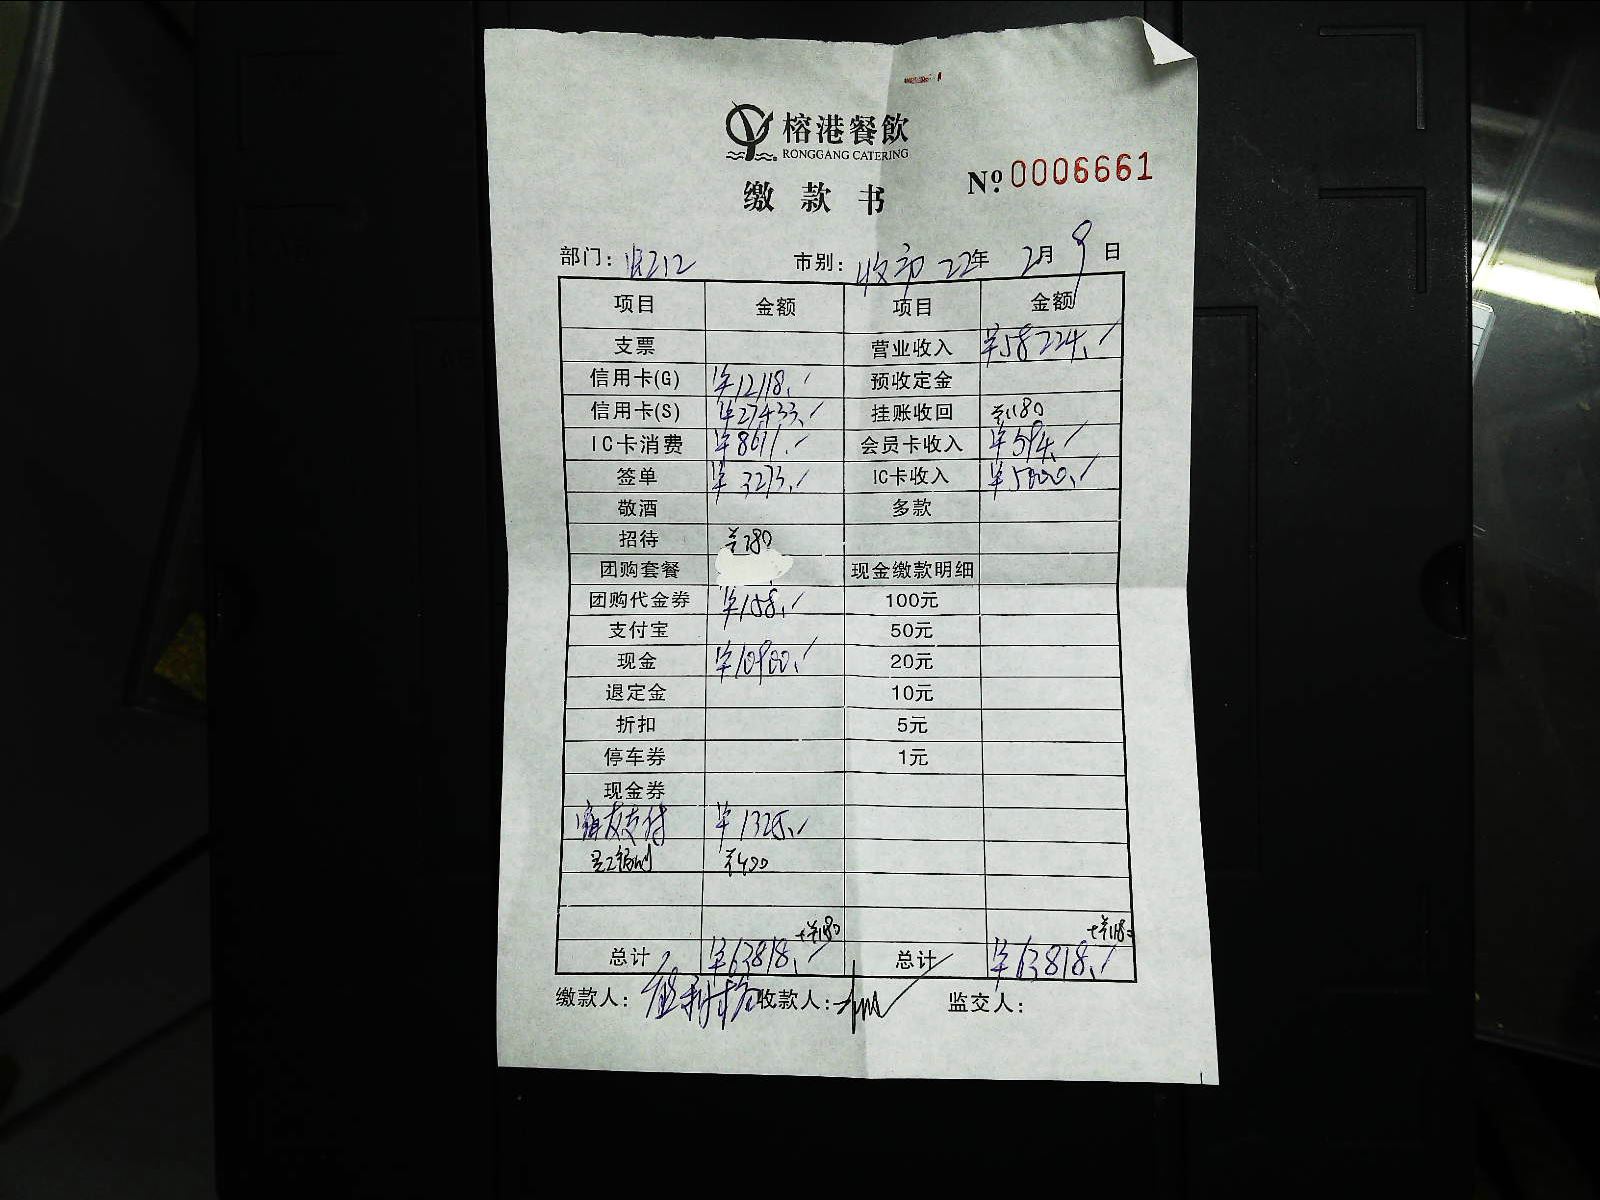 榕港餐飲
RONGGANG CATERING
缴款书
Nº: 0006661
部门: 市别: 收市 22年 2月 9日
项目 金额 项目 金额
支票 营业收入 ¥58224.
信用卡(G) ¥12118. 预收定金
信用卡(S) ¥27433. 挂账收回 ¥1180
IC卡消费 ¥8611. 会员卡收入 ¥594.
签单 ¥3273. IC卡收入 ¥5000.
敬酒 多款
招待 ¥780
团购套餐 现金缴款明细
团购代金券 ¥158. 100元
支付宝 50元
现金 ¥10900. 20元
退定金 10元
折扣 5元
停车券 1元
现金券
支付 ¥1325.
¥400
+¥1180 +¥1180
总计 ¥63818. 总计 ¥63818.
缴款人: 收款人: 监交人: